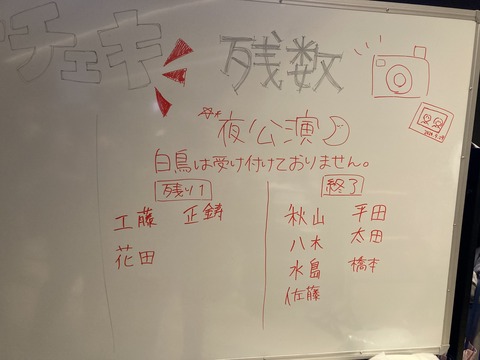 チェキ 残数
夜公演
白鳥は受け付けておりません。
残り1
工藤 正鋳
花田
終了
秋山 平田
八木 太田
水島 橋本
佐藤